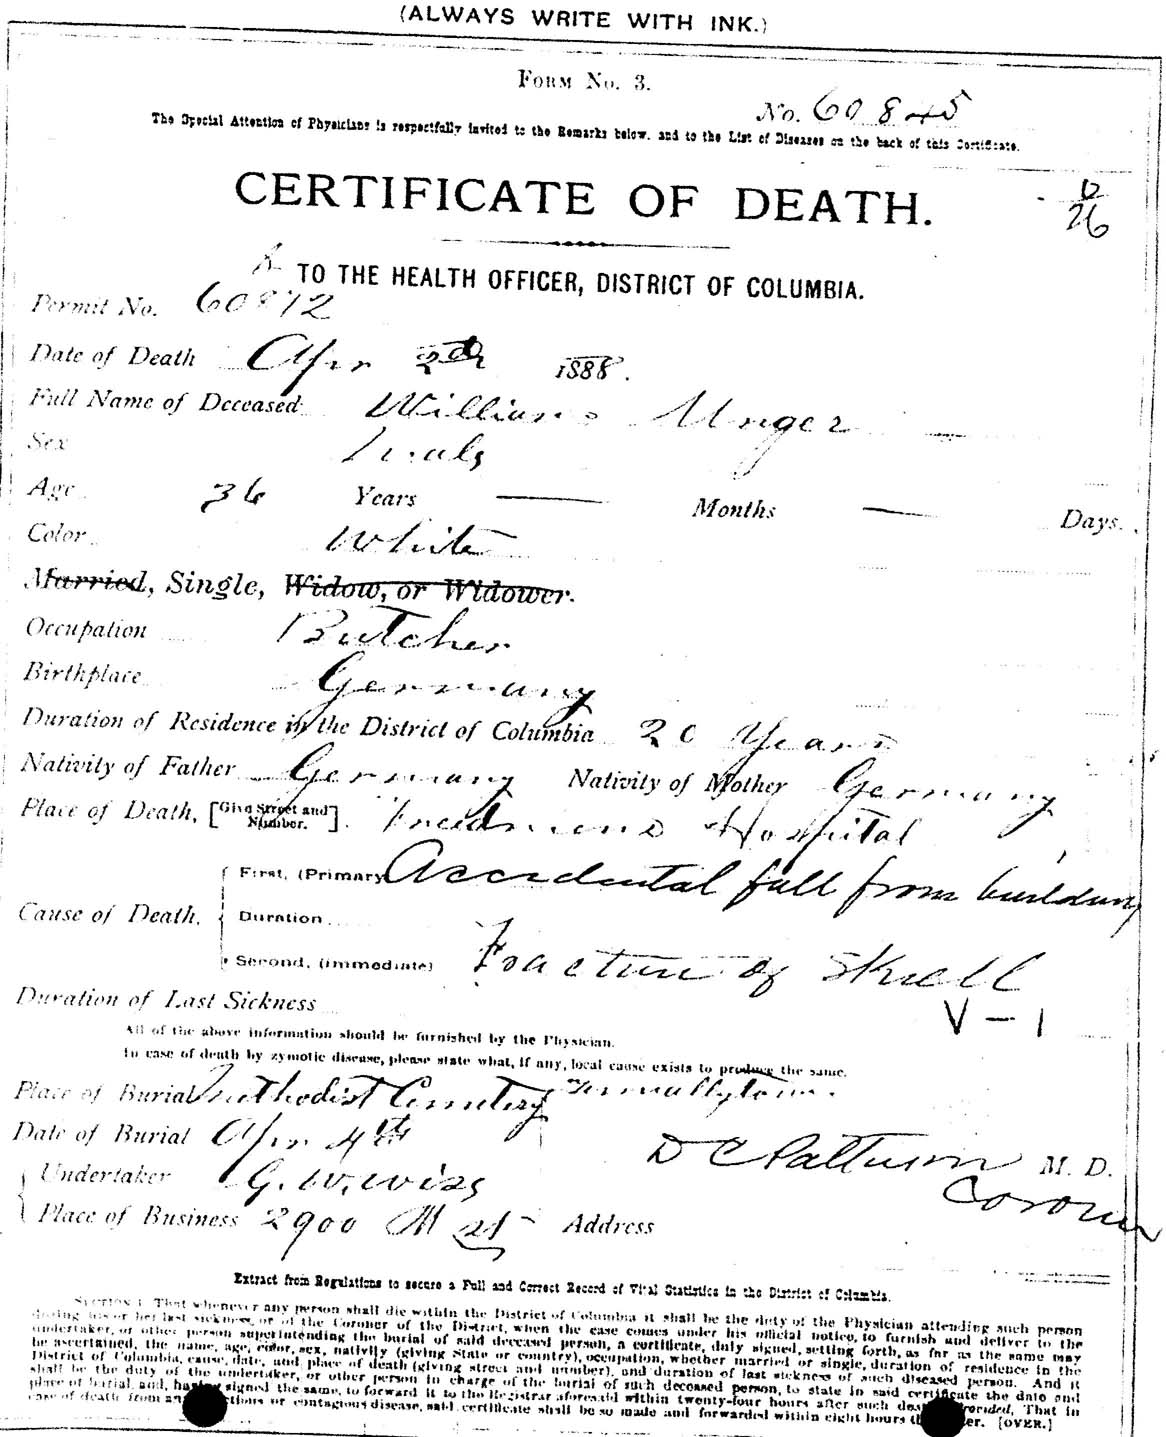 (ALWAYS WRITE WITH INK.)
FORM NO. 3.
No. 60845
The Special Attention of Physicians is respectfully invited to the Remarks below, and to the List of Diseases on the back of this Certificate.
CERTIFICATE OF DEATH.
D
26
TO THE HEALTH OFFICER, DISTRICT OF COLUMBIA.
Permit No. 60872
Date of Death Apr 2d 1888.
Full Name of Deceased William Unger
Sex Male
Age 36 Years — Months — Days.
Color White
Married, Single, Widow, or Widower.
Occupation Butcher
Birthplace Germany
Duration of Residence in the District of Columbia 20 Years
Nativity of Father Germany Nativity of Mother Germany
Place of Death, [Give Street and Number.]. Freedmens Hospital
First, (Primary Accidental fall from building
Cause of Death,
Duration
Second, (Immediate) Fracture of Skull
Duration of Last Sickness
V - 1
All of the above information should be furnished by the Physician.
In case of death by zymotic disease, please state what, if any, local cause exists to produce the same.
Place of Burial Methodist Cemetery Tennallytown.
Date of Burial Apr 4th
D C Patterson M. D.
Undertaker G. W. Wise
Coroner
Place of Business 2900 M st Address
Extract from Regulations to secure a Full and Correct Record of Vital Statistics in the District of Columbia.
SECTION 1. That whenever any person shall die within the District of Columbia it shall be the duty of the Physician attending such person
during his or her last sickness, or of the Coroner of the District, when the case comes under his official notice, to furnish and deliver to the
undertaker, or other person superintending the burial of said deceased person, a certificate, duly signed, setting forth, as far as the same may
be ascertained, the name, age, color, sex, nativity (giving State or country), occupation, whether married or single, duration of residence in the
District of Columbia, cause, date, and place of death (giving street and number), and duration of last sickness of such diseased person. And it
shall be the duty of the undertaker, or other person in charge of the burial of such deceased person, to state in said certificate the date and
place of burial, and, having signed the same, to forward it to the Registrar aforesaid within twenty-four hours after such death: Provided, That in
case of death from or contagious disease, said certificate shall be so made and forwarded within eight hours [OVER.]